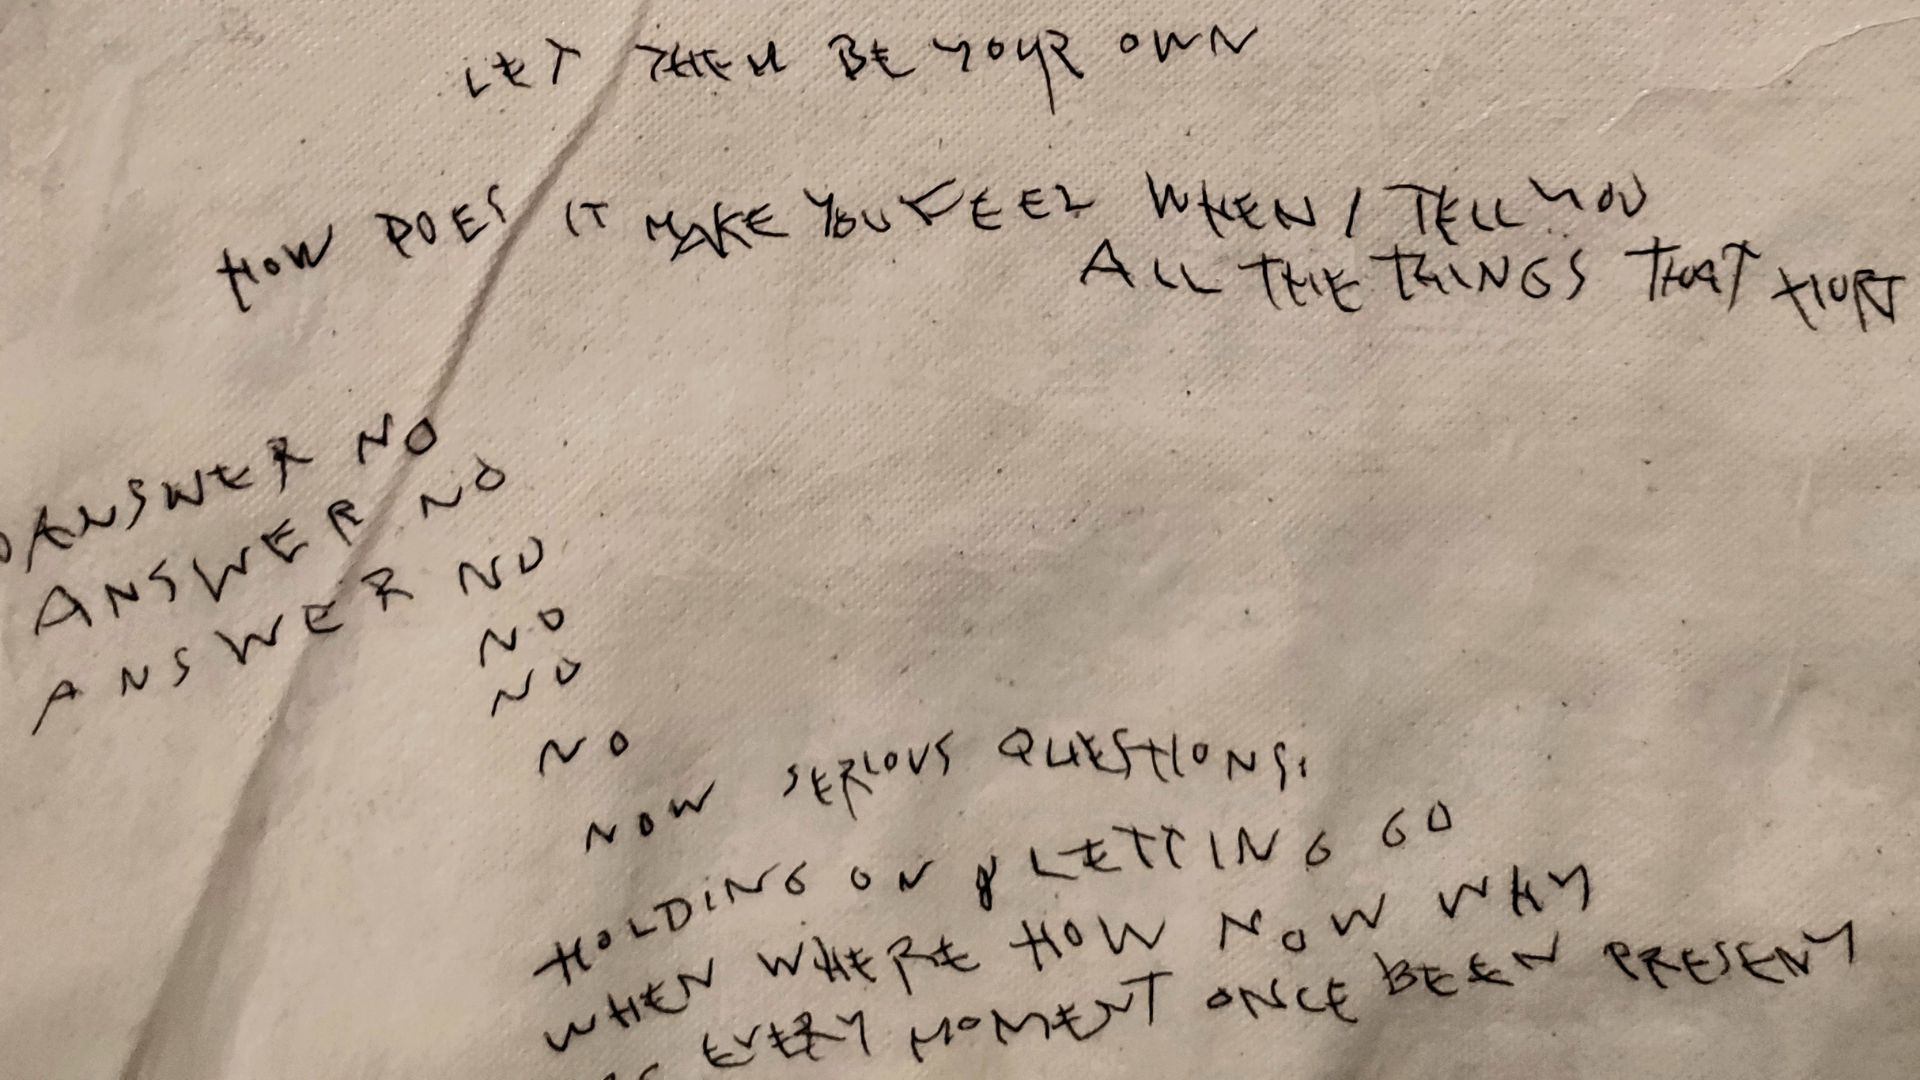 LET THEM BE YOUR OWN
HOW DOES IT MAKE YOU FEEL WHEN I TELL YOU
ALL THE THINGS THAT HURT
ANSWER NO
ANSWER NO
ANSWER NO
NO
NO
NO
NOW SERIOUS QUESTIONS.
HOLDING ON & LETTING GO
WHEN WHERE HOW NOW WHY
EVERY MOMENT ONCE BEEN PRESENT